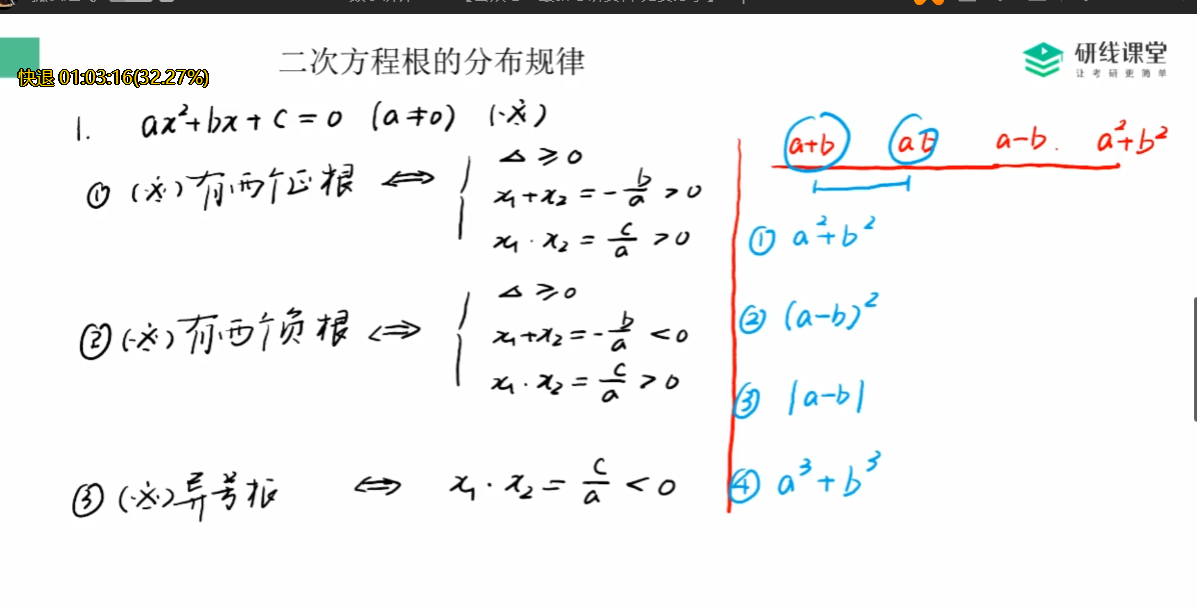 二次方程根的分布规律
研线课堂
让考研更简单
快退 01:03:16(32.27%)
1. ax²+bx+c=0 (a≠0) (※)
① (※)有两个正根 ⟺ { Δ≥0
x₁+x₂=-b/a>0
x₁·x₂=c/a>0
② (※)有两个负根 ⟺ { Δ≥0
x₁+x₂=-b/a<0
x₁·x₂=c/a>0
③ (※)异号根 ⟺ x₁·x₂=c/a<0
a+b ab a-b. a²+b²
① a²+b²
② (a-b)²
③ |a-b|
④ a³+b³